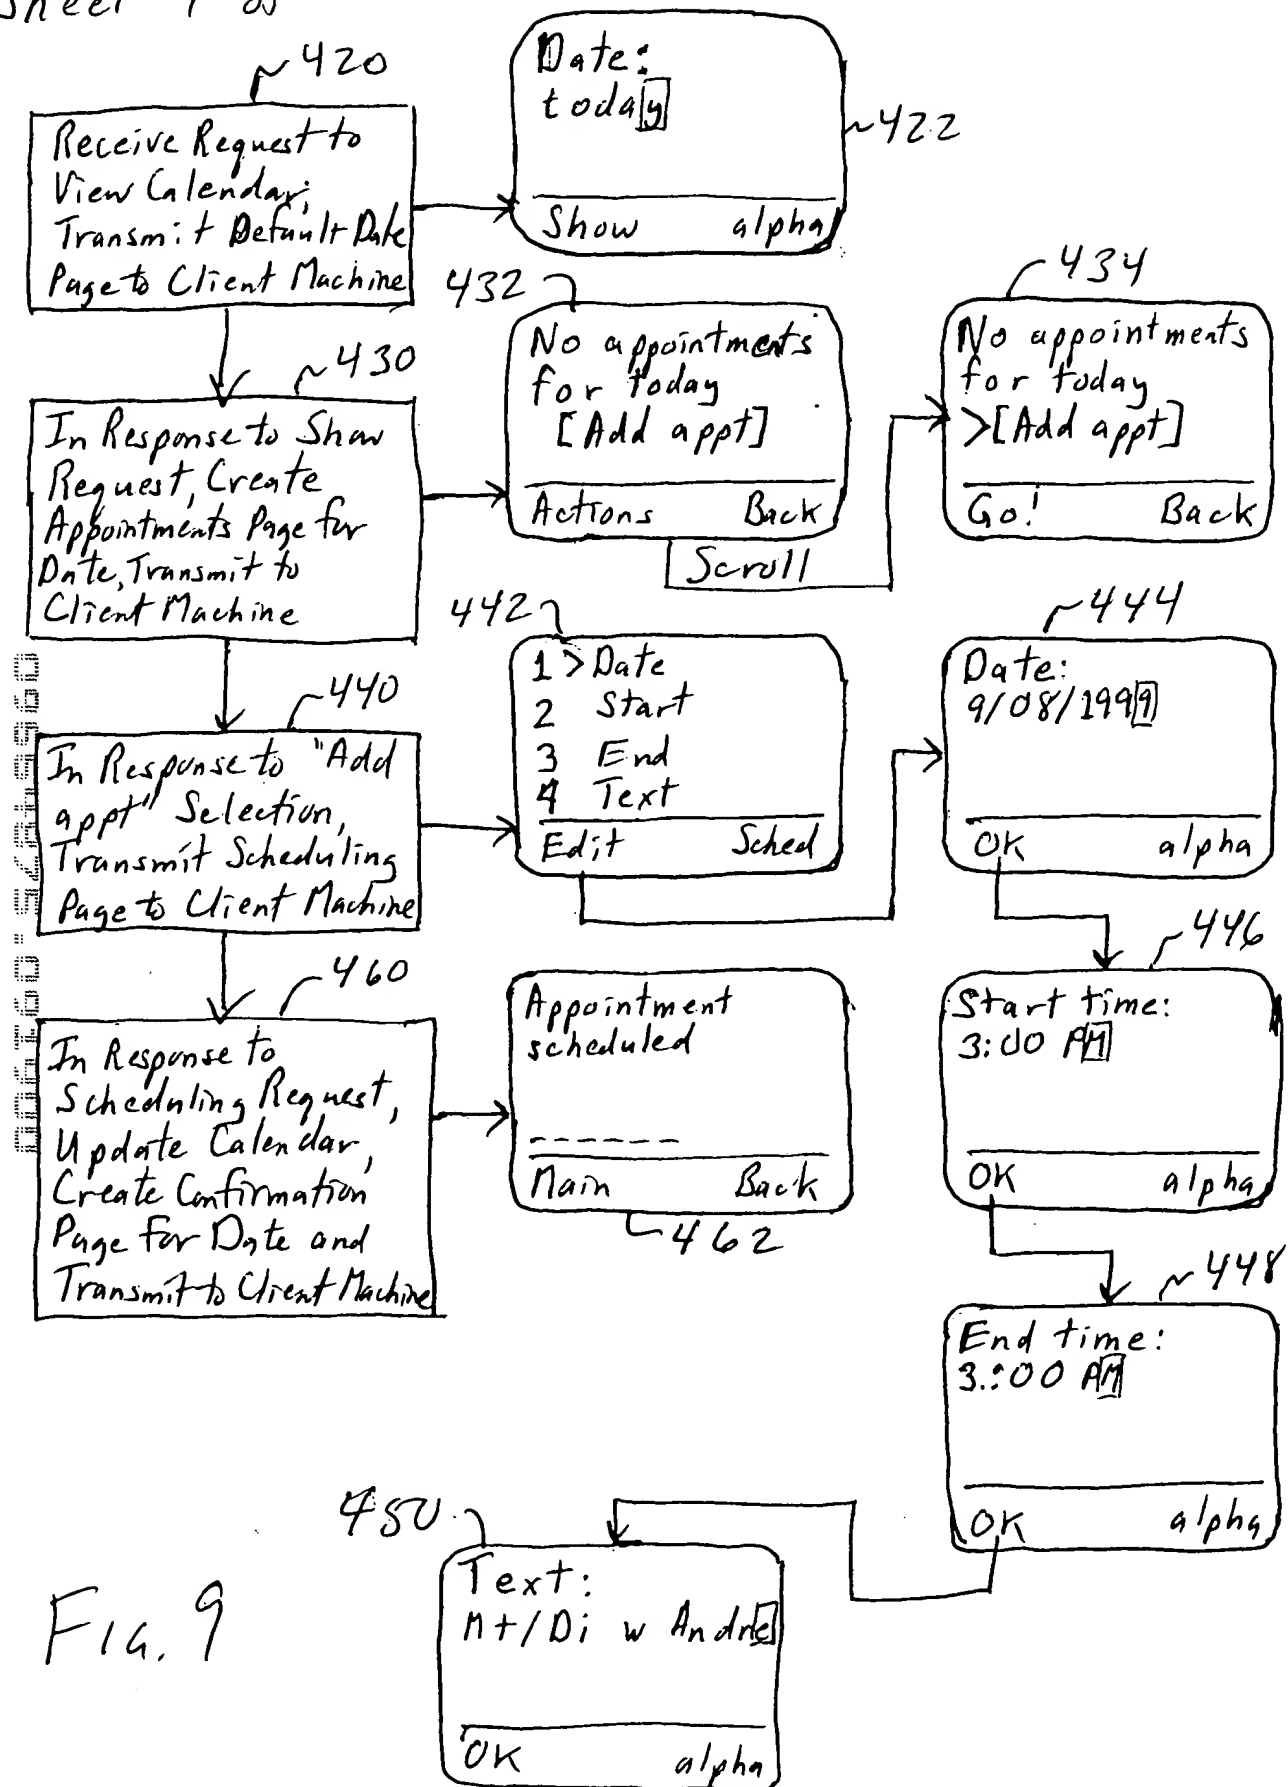 Sheet 9 of
420
Receive Request to
View Calendar;
Transmit Default Date
Page to Client Machine
Date:
today
Show alpha
422
430
In Response to Show
Request, Create
Appointments Page for
Date, Transmit to
Client Machine
432
No appointments
for today
[Add appt]
Actions Back
Scroll
434
No appointments
for today
>[Add appt]
Go! Back
440
In Response to "Add
appt" Selection,
Transmit Scheduling
Page to Client Machine
442
1 > Date
2 Start
3 End
4 Text
Edit Sched
444
Date:
9/08/1999
OK alpha
446
Start time:
3:00 AM
OK alpha
448
End time:
3:00 AM
OK alpha
450
Text:
Mt/Di w Andre
OK alpha
460
In Response to
Scheduling Request,
Update Calendar,
Create Confirmation
Page for Date and
Transmit to Client Machine
Appointment
scheduled
------
Main Back
462
FIG. 9